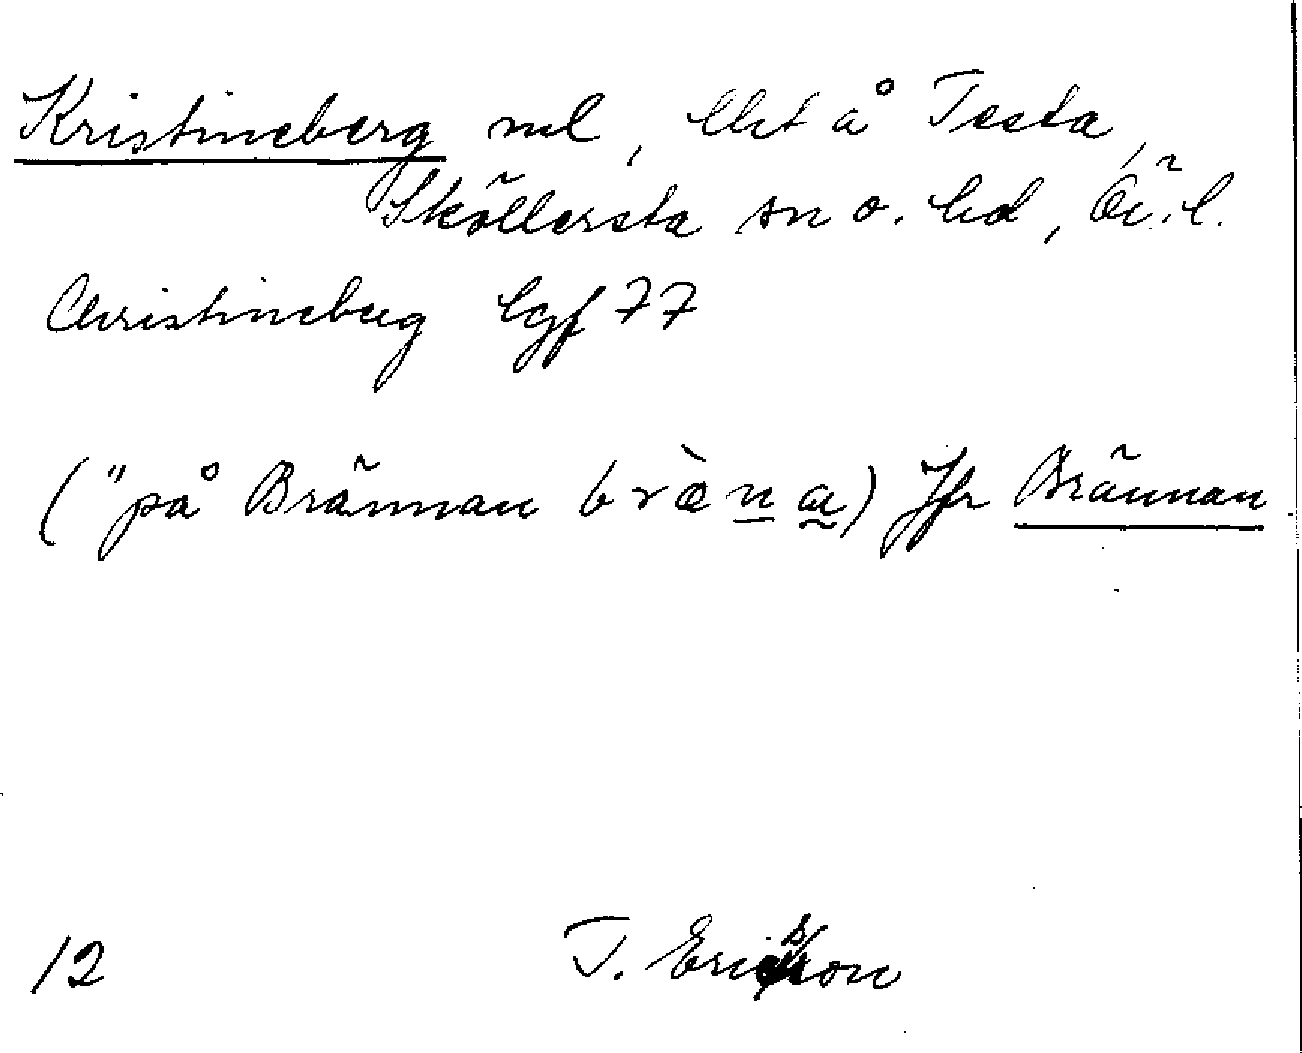 Kristineberg nml, lht å Testa,
Sköllersta sn o. hd, Ör. l.
Christineberg lgf 77
("på Brännan brὲna) Jfr Brännan
12 T. Ericson